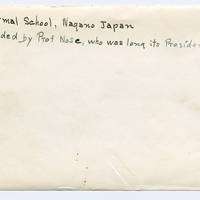 rmal School, Nagano Japan
ded by Prof Nose, who was long its Presiden